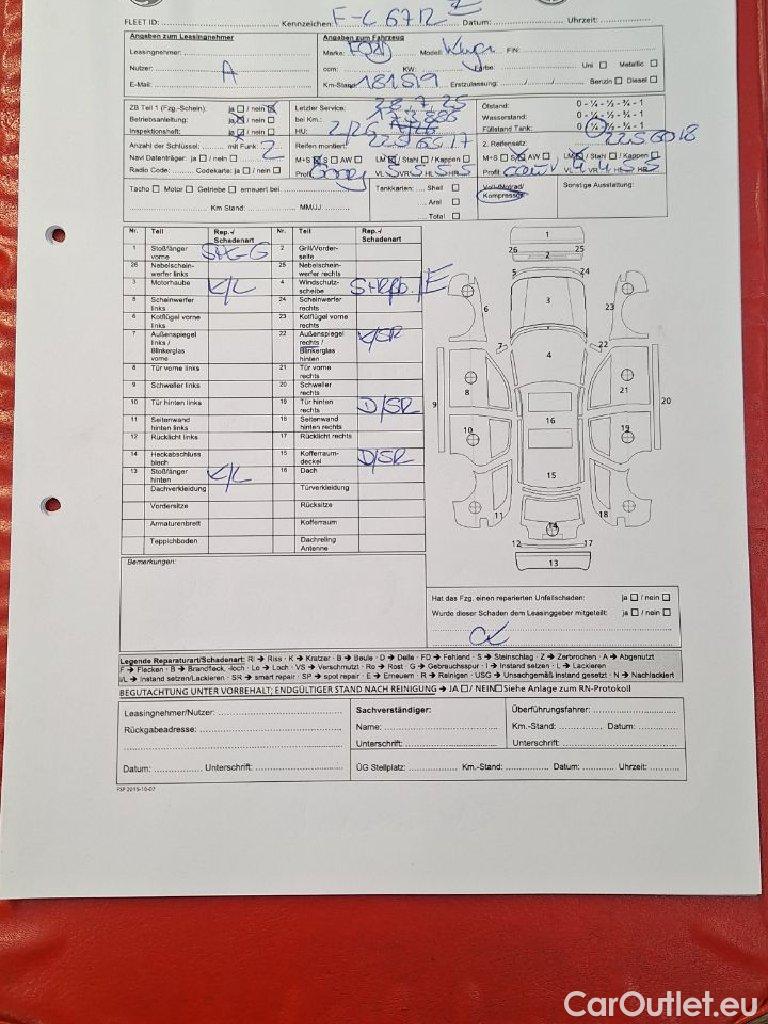 FLEET ID: Kennzeichen: F-C 67 Datum: Uhrzeit:
Angaben zum Leasingnehmer
Leasingnehmer:
Nutzer: A
E-Mail:
Angaben zum Fahrzeug
Marke: FORD Modell: Kuga FIN:
ccm: KW: Farbe: Uni Metallic
Km-Stand: 181819 Erstzulassung: Benzin Diesel
ZB Teil 1 (Fzg.-Schein): ja / nein
Betriebsanleitung: ja / nein
Inspektionsheft: ja / nein
Letzter Service: 28.7.25
bei Km.:
HU: 2/26
Ölstand: 0 - ¼ - ½ - ¾ - 1
Wasserstand: 0 - ¼ - ½ - ¾ - 1
Füllstand Tank: 0 - ¼ - ½ - ¾ - 1
Anzahl der Schlüssel: mit Funk: 2
Navi Datenträger: ja / nein
Radio Code: Codekarte: ja / nein
Reifen montiert: 225 65 17
M+S S AW LM / Stahl / Kappen
Profil: VL 5 VR 5 HL 5 HR 5
2. Reifensatz: 225 60 18
M+S S AW LM / Stahl / Kappen
Profil: VL 4 VR 4 HL 5 HR 5
Tacho Motor Getriebe erneuert bei
Km Stand: MM/JJ
Tankkarten: Shell
Aral
Total
Voll-/Notrad/
Kompressor
Sonstige Ausstattung:
Nr. Teil Rep.-/ Schadenart Nr. Teil Rep.-/ Schadenart
1 Stoßfänger vorne 2 Grill/Vorder-seite
26 Nebelschein-werfer links 25 Nebelschein-werfer rechts
3 Motorhaube K/L 4 Windschutz-scheibe /E
5 Scheinwerfer links 24 Scheinwerfer rechts
6 Kotflügel vorne links 23 Kotflügel vorne rechts
7 Außenspiegel links / Blinkerglas vorne 22 Außenspiegel rechts / Blinkerglas hinten K/SR
8 Tür vorne links 21 Tür vorne rechts
9 Schweller links 20 Schweller rechts
10 Tür hinten links 19 Tür hinten rechts D/SR
11 Seitenwand hinten links 18 Seitenwand hinten rechts
12 Rücklicht links 17 Rücklicht rechts
14 Heckabschluss blech 15 Kofferraum-deckel D/SR
13 Stoßfänger hinten K/L 16 Dach
Dachverkleidung Türverkleidung
Vordersitze Rücksitze
Armaturenbrett Kofferraum
Teppichboden Dachreling Antenne
1
26 25
2
5 24
3
6 23
7 22
4
8 21
9 20
10 16 19
15
11 18
14
12 17
13
Bemerkungen:
Hat das Fzg. einen reparierten Unfallschaden: ja / nein
Wurde dieser Schaden dem Leasinggeber mitgeteilt: ja / nein
Legende Reparaturart/Schadenart: RI → Riss · K → Kratzer · B → Beule · D → Delle · FD → Fehlend · S → Steinschlag · Z → Zerbrochen · A → Abgenutzt
F → Flecken · B → Brandfleck, -loch · Lo → Loch · VS → Verschmutzt · Ro → Rost · G → Gebrauchsspur · I → Instand setzen · L → Lackieren
I/L → Instand setzen/Lackieren · SR → smart repair · SP → spot repair · E → Erneuern · R → Reinigen · USG → Unsachgemäß instand gesetzt · N → Nachlackiert
BEGUTACHTUNG UNTER VORBEHALT; ENDGÜLTIGER STAND NACH REINIGUNG → JA / NEIN Siehe Anlage zum RN-Protokoll
Leasingnehmer/Nutzer:
Rückgabeadresse:
Datum: Unterschrift:
Sachverständiger:
Name:
Unterschrift:
Überführungsfahrer:
Km.-Stand: Datum:
Unterschrift:
ÜG Stellplatz: Km.-Stand: Datum: Uhrzeit:
CarOutlet.eu